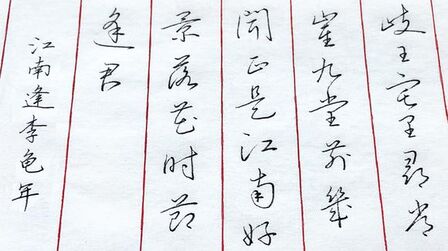 岐王宅里寻常
崔九堂前幾
闻正是江南好
景落花时节
逢君
江南逢李龟年